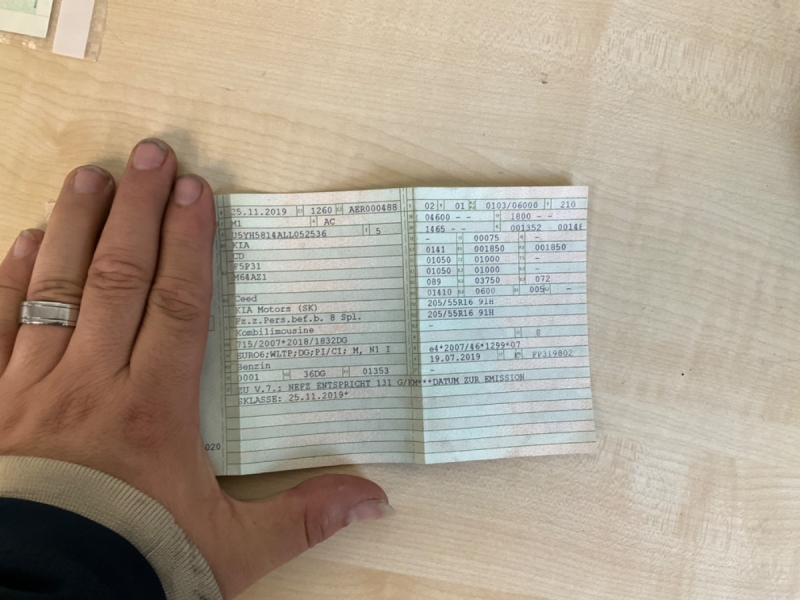 25.11.2019 1260 AER000488
M1 AC
U5YH5814ALL052536 5
KIA
CD
F5P31
M64AZ1
Ceed
KIA Motors (SK)
Fz.z.Pers.bef.b. 8 Spl.
Kombilimousine
715/2007*2018/1832DG
EURO6;WLTP;DG;PI/CI; M, N1 I
Benzin
0001 36DG 01353
ZU V.7.: NEFZ ENTSPRICHT 131 G/KM***DATUM ZUR EMISSION
SKLASSE: 25.11.2019*
020
02 01 0103/06000 210
04600 - - 1800 - -
1465 - - 001352
- 00075 -
0141 001850 001850
01050 01000 -
01050 01000 -
089 03750 072
01410 0600 -
205/55R16 91H
205/55R16 91H
-
8
e4*2007/46*1299*07
19.07.2019 FP319802
-